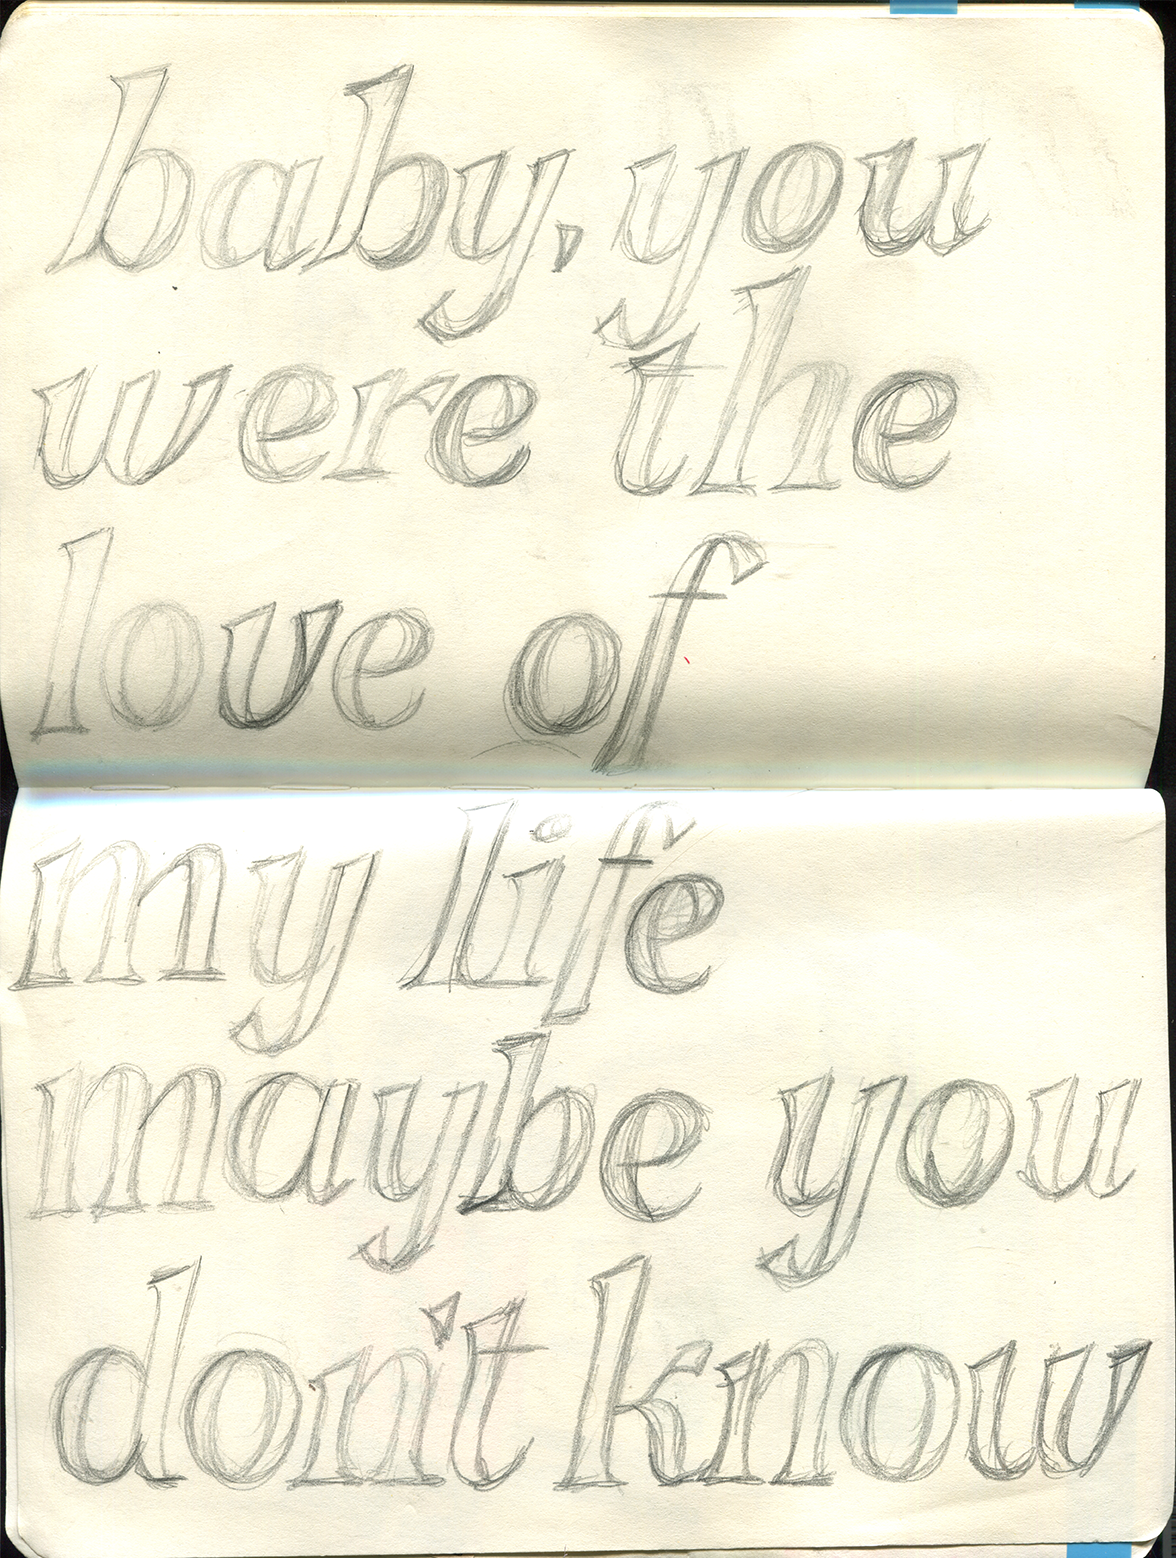 baby, you
were the
love of
my life
maybe you
don't know